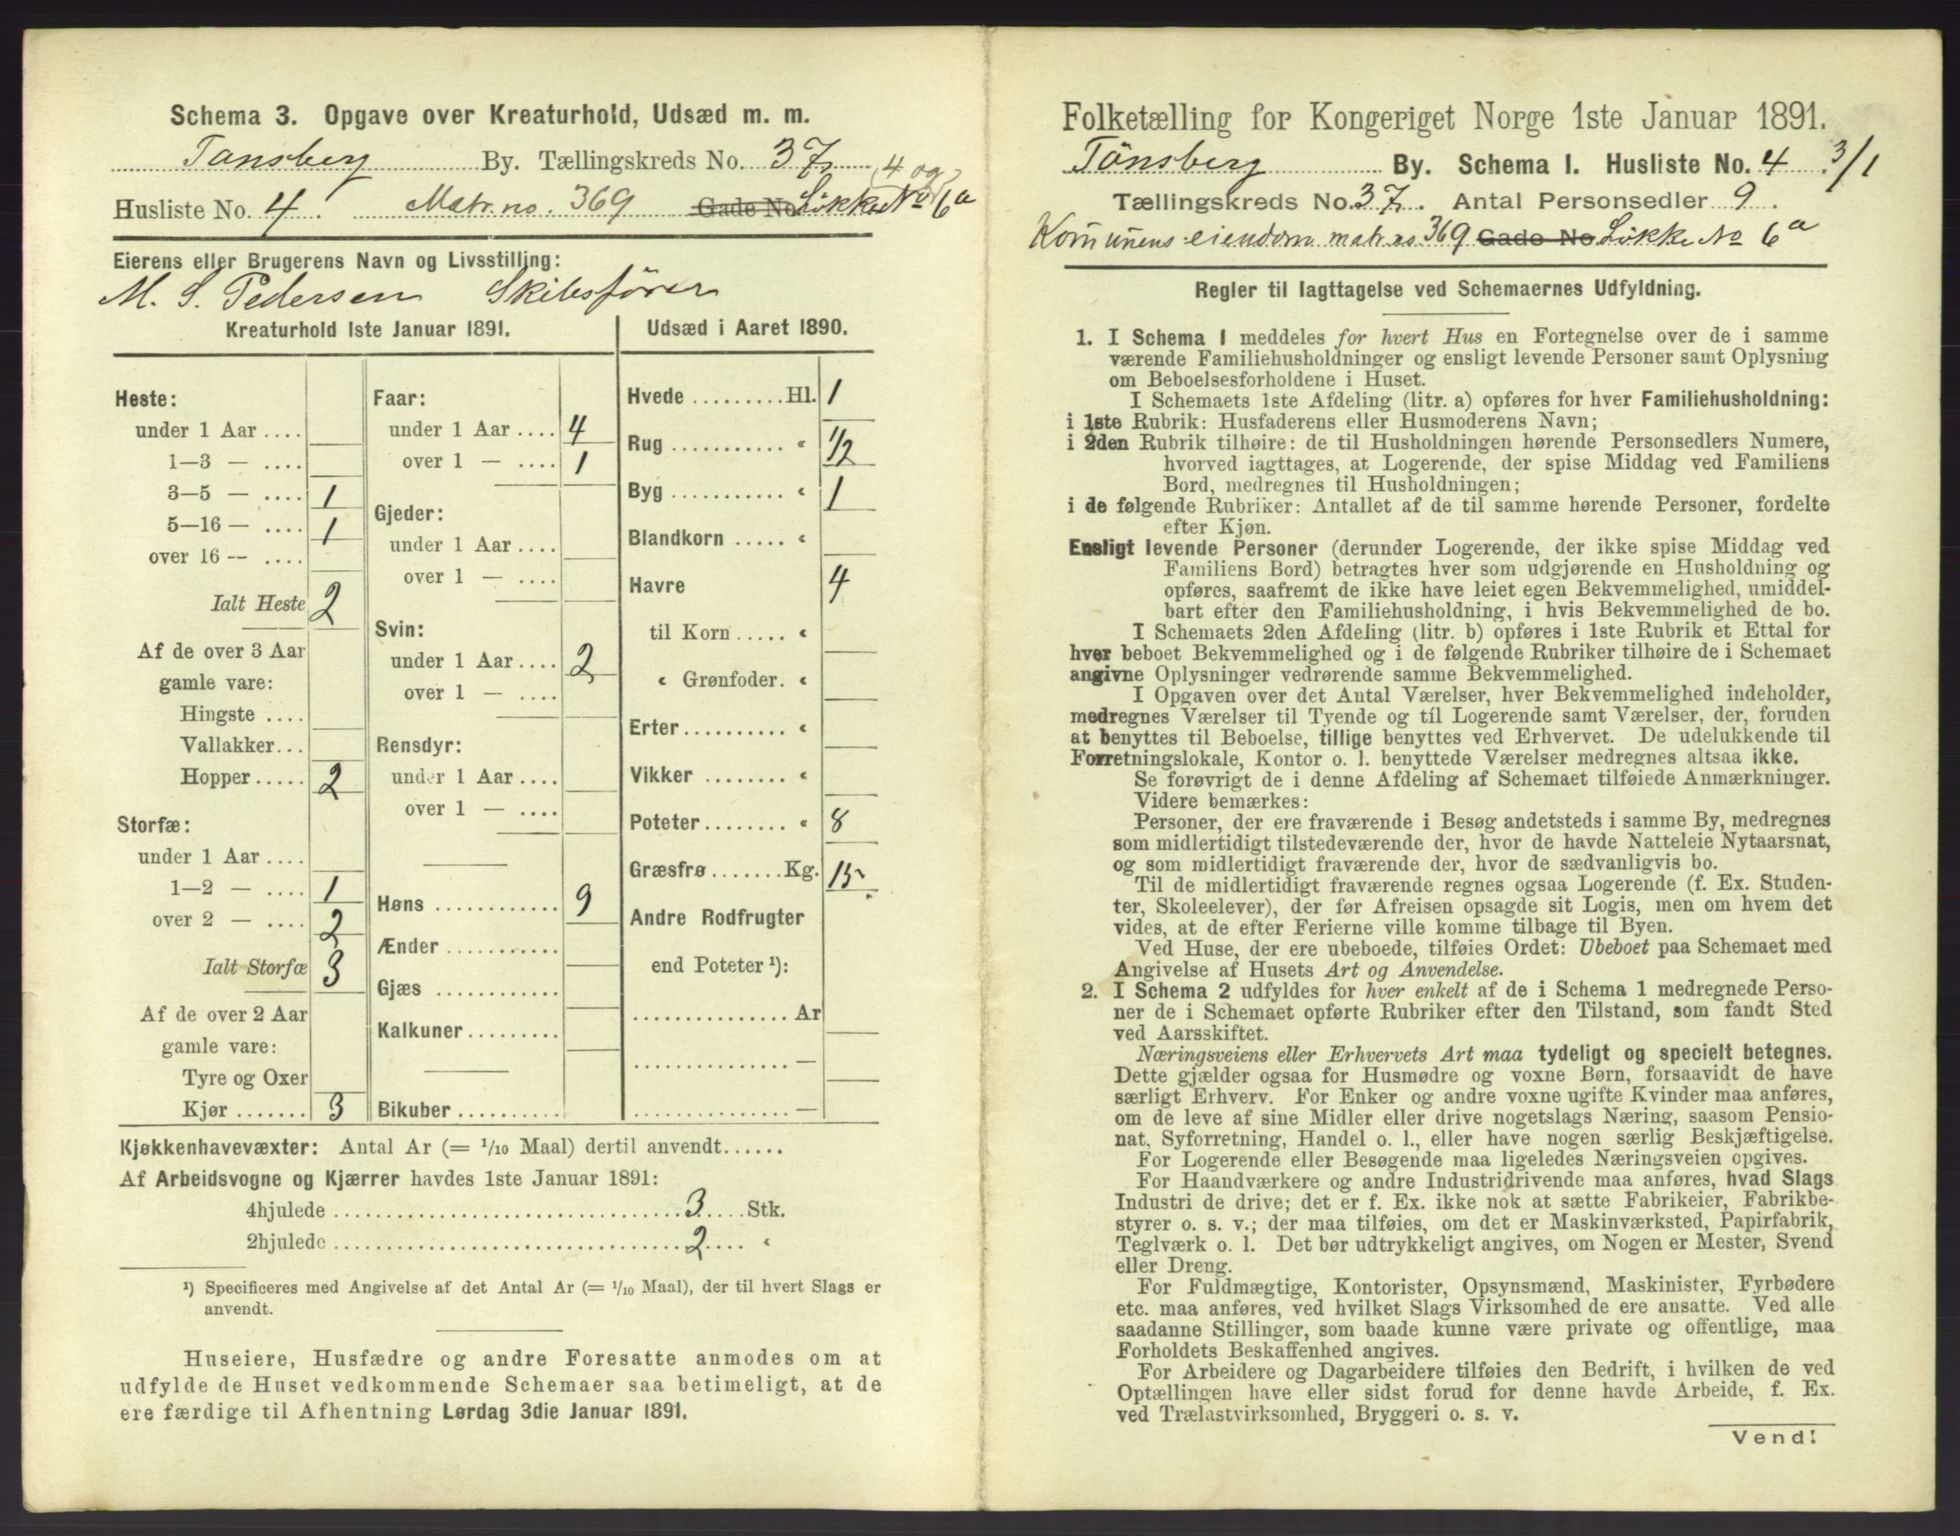 Schema 3. Opgave over Kreaturhold, Udsæd m. m.
Tønsberg By. Tællingskreds No. 37.
Husliste No. 4. Matr. no. 369 Gade No Løkke No 6a
4 og
Eierens eller Brugerens Navn og Livsstilling:
M. S. Pedersen Skibsfører
Kreaturhold 1ste Januar 1891.
Heste:
under 1 Aar ....
1—3 — ....
3—5 — .... 1
5—16 — .... 1
over 16 — ....
Ialt Heste 2
Af de over 3 Aar
gamle vare:
Hingste ....
Vallakker...
Hopper ..... 2
Storfæ:
under 1 Aar ....
1—2 — .... 1
over 2 — .... 2
Ialt Storfæ 3
Af de over 2 Aar
gamle vare:
Tyre og Oxer
Kjør ....... 3
Faar:
under 1 Aar .... 4
over 1 — .... 1
Gjeder:
under 1 Aar ....
over 1 — ....
Svin:
under 1 Aar .... 2
over 1 — ....
Rensdyr:
under 1 Aar ....
over 1 — ....
Høns ............ 9
Ænder ...........
Gjæs ............
Kalkuner.........
Bikuber ..........
Udsæd i Aaret 1890.
Hvede .........Hl. 1
Rug ........... « 1/2
Byg ........... « 1
Blandkorn ..... «
Havre 4
til Korn ..... «
« Grønfoder. «
Erter.......... «
Vikker ........ «
Poteter........ « 8
Græsfrø .......Kg. 15
Andre Rodfrugter
end Poteter ¹):
............... Ar
............... —
............... —
Kjøkkenhavevæxter: Antal Ar (= 1/10 Maal) dertil anvendt......
Af Arbeidsvogne og Kjærrer havdes 1ste Januar 1891:
4hjulede .................................3.... Stk.
2hjulede .................................2.... «
¹) Specificeres med Angivelse af det Antal Ar (= 1/10 Maal), der til hvert Slags er
anvendt.
Huseiere, Husfædre og andre Foresatte anmodes om at
udfylde de Huset vedkommende Schemaer saa betimeligt, at de
ere færdige til Afhentning Lørdag 3die Januar 1891.
Folketælling for Kongeriget Norge 1ste Januar 1891.
Tönsberg By. Schema I. Husliste No. 4. 3/1
Tællingskreds No. 37. Antal Personsedler 9.
Komunens eiendom matr no 369 Gade No Løkke No 6a
Regler til Iagttagelse ved Schemaernes Udfyldning.
1. I Schema I meddeles for hvert Hus en Fortegnelse over de i samme
værende Familiehusholdninger og ensligt levende Personer samt Oplysning
om Beboelsesforholdene i Huset.
I Schemaets 1ste Afdeling (litr. a) opføres for hver Familiehusholdning:
i 1ste Rubrik: Husfaderens eller Husmoderens Navn;
i 2den Rubrik tilhøire: de til Husholdningen hørende Personsedlers Numere,
hvorved iagttages, at Logerende, der spise Middag ved Familiens
Bord, medregnes til Husholdningen;
i de følgende Rubriker: Antallet af de til samme hørende Personer, fordelte
efter Kjøn.
Ensligt levende Personer (derunder Logerende, der ikke spise Middag ved
Familiens Bord) betragtes hver som udgjørende en Husholdning og
opføres, saafremt de ikke have leiet egen Bekvemmelighed, umiddel-
bart efter den Familiehusholdning, i hvis Bekvemmelighed de bo.
I Schemaets 2den Afdeling (litr. b) opføres i 1ste Rubrik et Ettal for
hver beboet Bekvemmelighed og i de følgende Rubriker tilhøire de i Schemaet
angivne Oplysninger vedrørende samme Bekvemmelighed.
I Opgaven over det Antal Værelser, hver Bekvemmelighed indeholder,
medregnes Værelser til Tyende og til Logerende samt Værelser, der, foruden
at benyttes til Beboelse, tillige benyttes ved Erhvervet. De udelukkende til
Forretningslokale, Kontor o. l. benyttede Værelser medregnes altsaa ikke.
Se forøvrigt de i denne Afdeling af Schemaet tilføiede Anmærkninger.
Videre bemærkes:
Personer, der ere fraværende i Besøg andetsteds i samme By, medregnes
som midlertidigt tilstedeværende der, hvor de havde Natteleie Nytaarsnat,
og som midlertidigt fraværende der, hvor de sædvanligvis bo.
Til de midlertidigt fraværende regnes ogsaa Logerende (f. Ex. Studen-
ter, Skoleelever), der før Afreisen opsagde sit Logis, men om hvem det
vides, at de efter Ferierne ville komme tilbage til Byen.
Ved Huse, der ere ubeboede, tilføies Ordet: Ubeboet paa Schemaet med
Angivelse af Husets Art og Anvendelse.
2. I Schema 2 udfyldes for hver enkelt af de i Schema 1 medregnede Perso-
ner de i Schemaet opførte Rubriker efter den Tilstand, som fandt Sted
ved Aarsskiftet.
Næringsveiens eller Erhvervets Art maa tydeligt og specielt betegnes.
Dette gjælder ogsaa for Husmødre og voxne Børn, forsaavidt de have
særligt Erhverv. For Enker og andre voxne ugifte Kvinder maa anføres,
om de leve af sine Midler eller drive nogetslags Næring, saasom Pensio-
nat, Syforretning, Handel o. l., eller have nogen særlig Beskjæftigelse.
For Logerende eller Besøgende maa ligeledes Næringsveien opgives.
For Haandværkere og andre Industridrivende maa anføres, hvad Slags
Industri de drive; det er f. Ex. ikke nok at sætte Fabrikeier, Fabrikbe-
styrer o. s. v.; der maa tilføies, om det er Maskinværksted, Papirfabrik,
Teglværk o. l. Det bør udtrykkeligt angives, om Nogen er Mester, Svend
eller Dreng.
For Fuldmægtige, Kontorister, Opsynsmænd, Maskinister, Fyrbødere
etc. maa anføres, ved hvilket Slags Virksomhed de ere ansatte. Ved alle
saadanne Stillinger, som baade kunne være private og offentlige, maa
Forholdets Beskaffenhed angives.
For Arbeidere og Dagarbeidere tilføies den Bedrift, i hvilken de ved
Optællingen have eller sidst forud for denne havde Arbeide, f. Ex.
ved Trælastvirksomhed, Bryggeri o. s. v.
Vend!